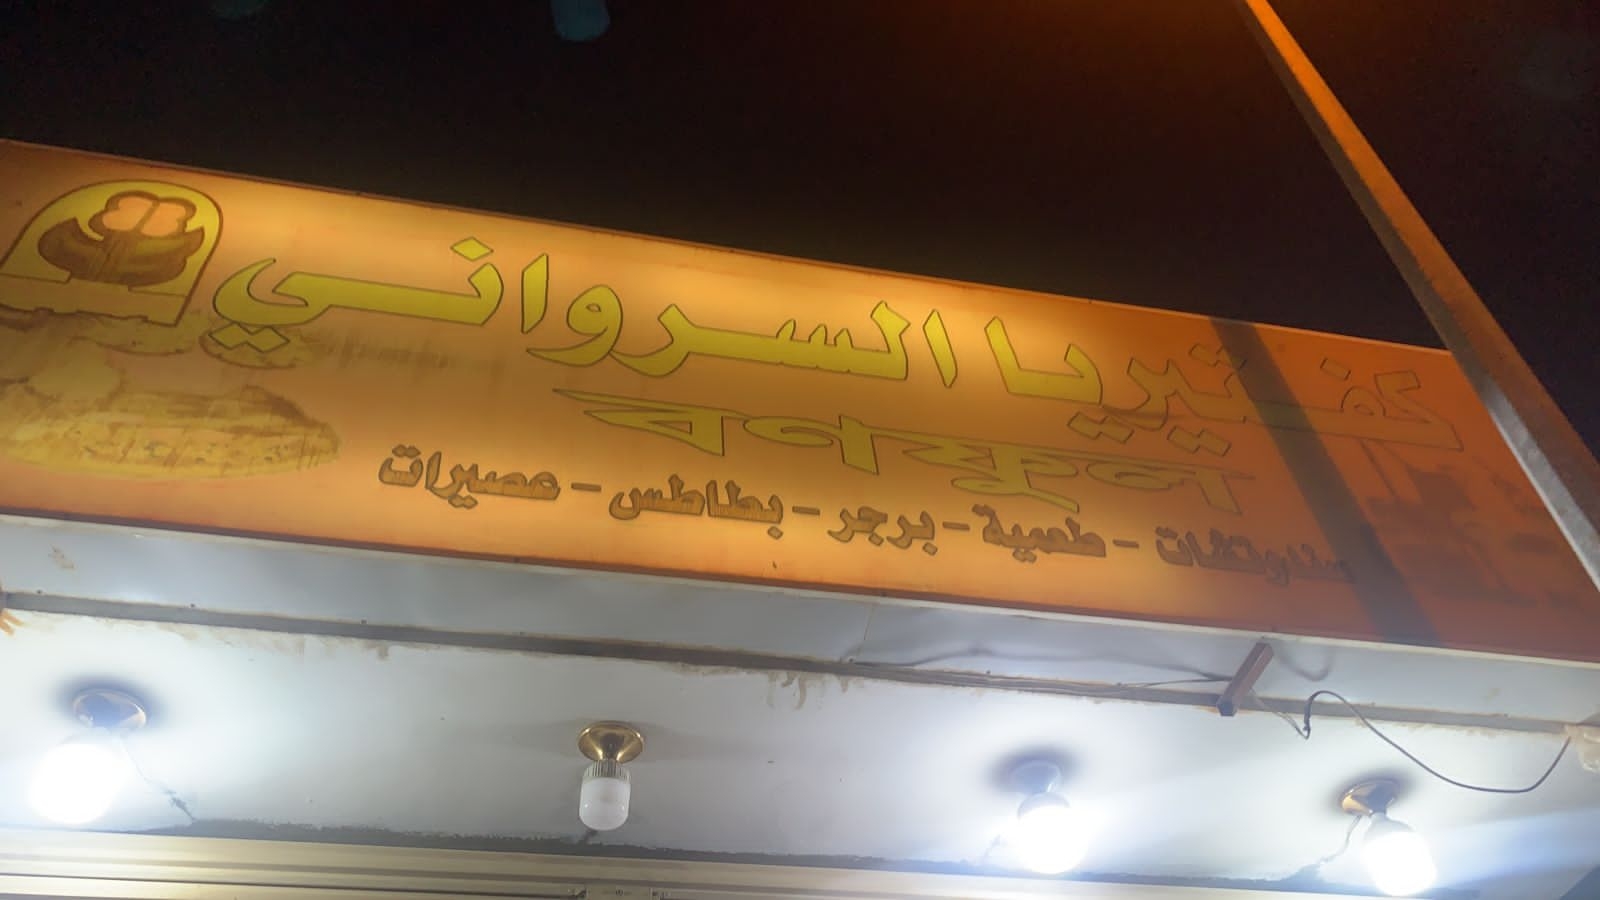 كفتيريا السرواني
বনফুল
سندوتشات - طعمية - برجر - بطاطس - عصيرات